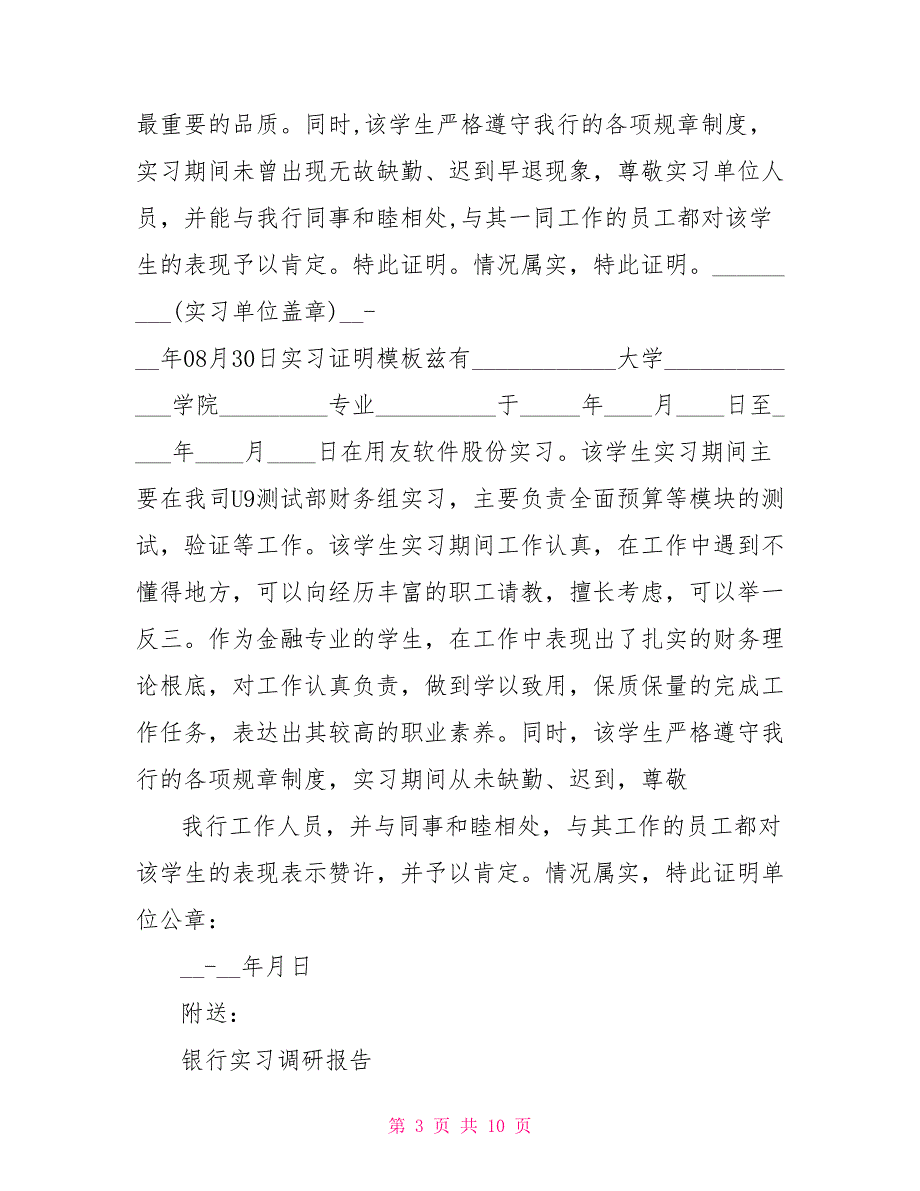 最重要的品质。同时,该学生严格遵守我行的各项规章制度，
实习期间未曾出现无故缺勤、迟到早退现象，尊敬实习单位人
员，并能与我行同事和睦相处,与其一同工作的员工都对该学
生的表现予以肯定。特此证明。情况属实，特此证明。______
___(实习单位盖章)__-
__年08月30日实习证明模板兹有____________大学__________
___学院_________专业__________于_____年____月____日至_
___年____月____日在用友软件股份实习。该学生实习期间主
要在我司U9测试部财务组实习，主要负责全面预算等模块的测
试，验证等工作。该学生实习期间工作认真，在工作中遇到不
懂得地方，可以向经历丰富的职工请教，擅长考虑，可以举一
反三。作为金融专业的学生，在工作中表现出了扎实的财务理
论根底，对工作认真负责，做到学以致用，保质保量的完成工
作任务，表达出其较高的职业素养。同时，该学生严格遵守我
行的各项规章制度，实习期间从未缺勤、迟到，尊敬
我行工作人员，并与同事和睦相处，与其工作的员工都对
该学生的表现表示赞许，并予以肯定。情况属实，特此证明单
位公章：
__-__年月日
附送：
银行实习调研报告
第 3 页 共 10 页